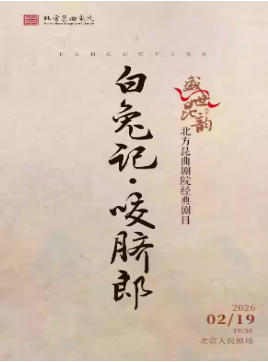 北方昆曲剧院
KUNQUOPERA
盛世昆韵
北方昆曲剧院经典剧目
白兔记·咬脐郎
2026
02/19
19:30
北京人民剧场